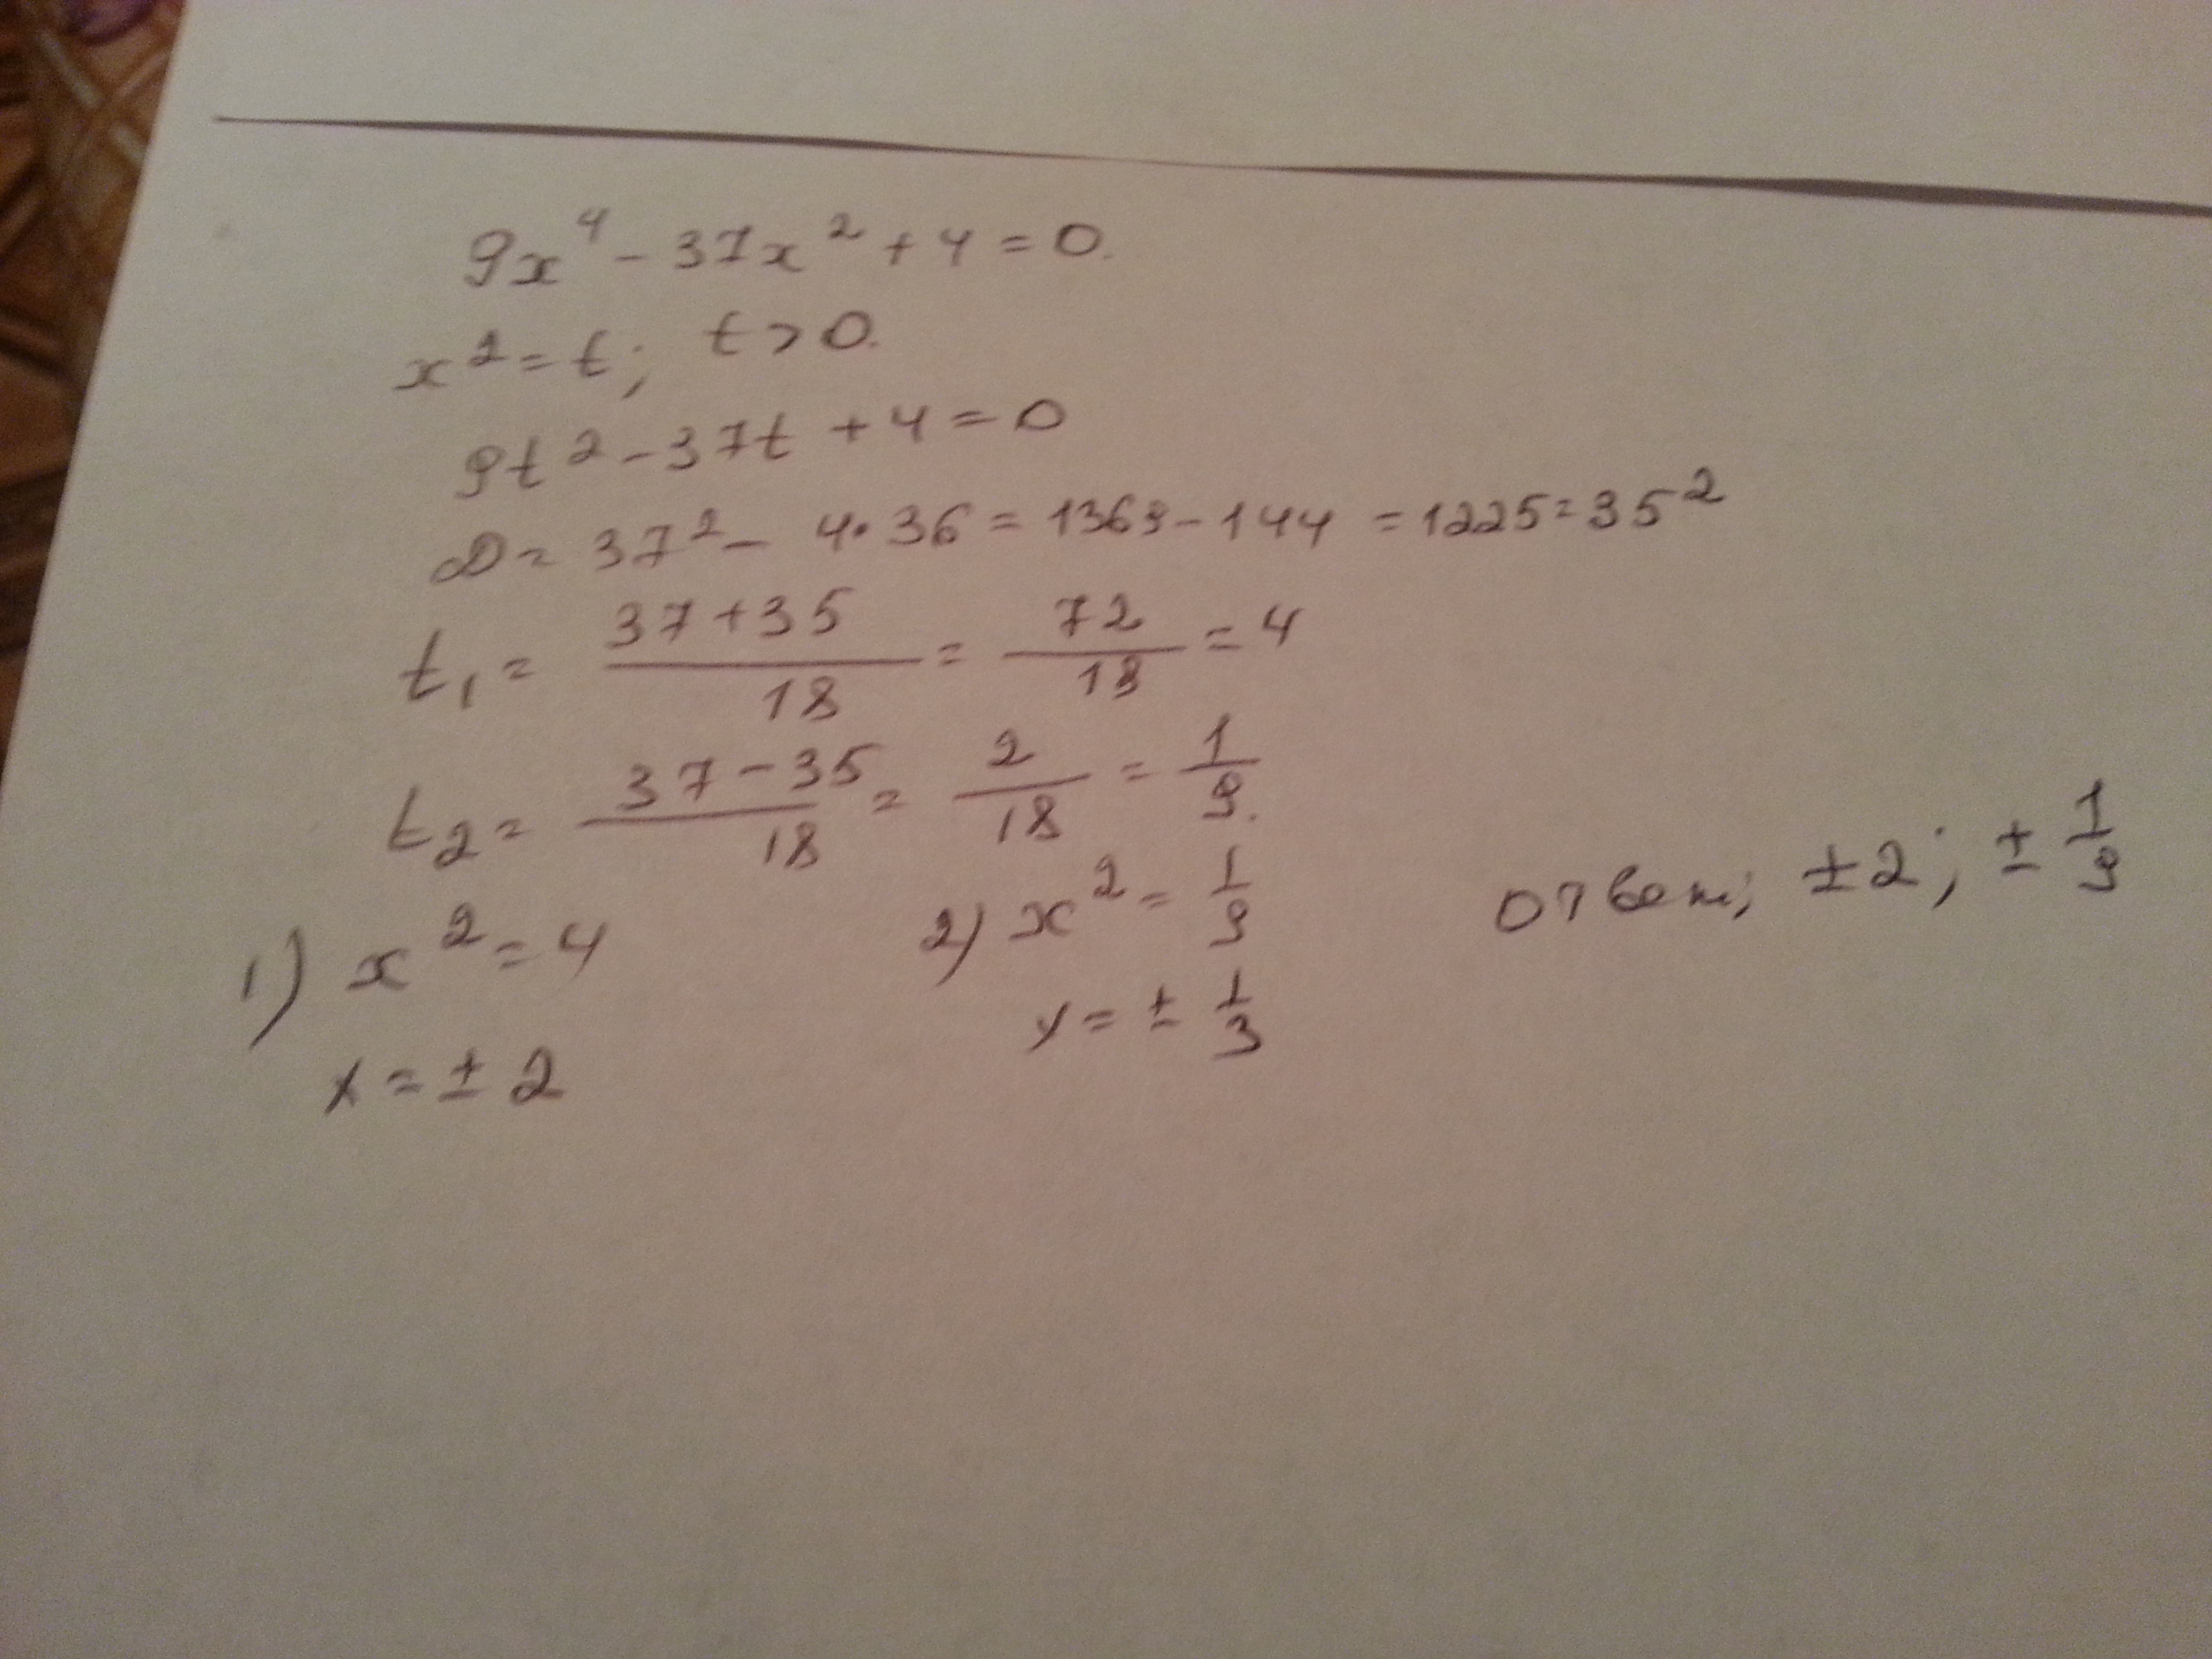 9x⁴ - 37x² + 4 = 0.
x² = t; t > 0.
9t² - 37t + 4 = 0
D = 37² - 4·36 = 1369 - 144 = 1225 = 35²
t₁ = (37+35)/18 = 72/18 = 4
t₂ = (37-35)/18 = 2/18 = 1/9.
1) x² = 4 2) x² = 1/9 Ответ; ±2; ± 1/9
x = ± 2 x = ± 1/3